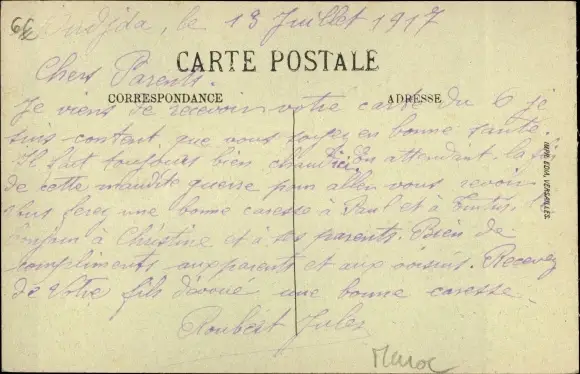 Oudjda, le 13 Juillet 1917
CARTE POSTALE
Chers Parents.
CORRESPONDANCE ADRESSE
Je viens de recevoir votre carte du 6 je
suis content que vous soyez en bonne santé.
Il fait toujours bien chaud ici en attendant la
de cette maudite guerre pour aller vous revoir
Vous ferez une bonne caresse à Paul et à
Bonjour à Christine et à ses parents. Bien de
compliments aux parents et aux voisins. Recevez
de votre fils dévoué une bonne caresse.
Roubert Jules
Maroc
IMPR. EDIA, VERSAILLES